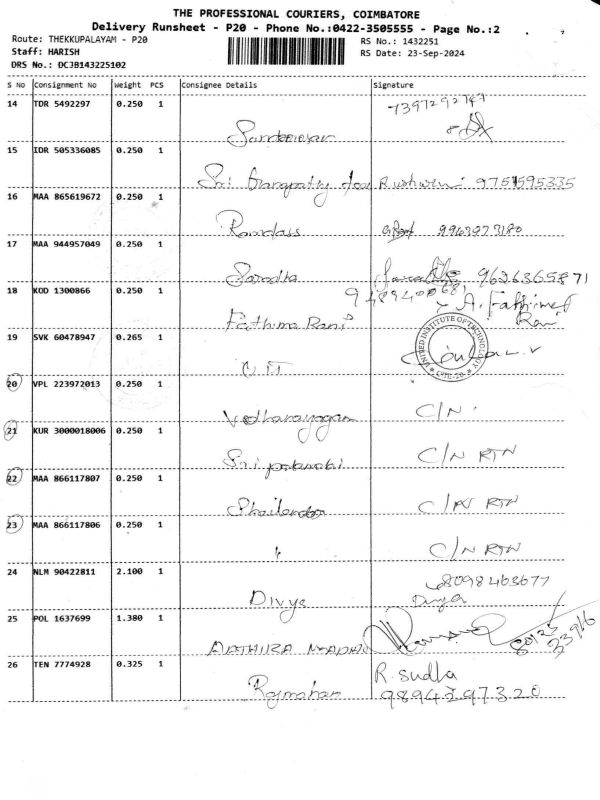 THE PROFESSIONAL COURIERS, COIMBATORE
Delivery Runsheet - P20 - Phone No.:0422-3505555 - Page No.:2
Route: THEKKUPALAYAM - P20
RS No.: 1432251
Staff: HARISH
RS Date: 23-Sep-2024
DRS No.: DCJB143225102
S No Consignment No Weight PCS Consignee Details Signature
14 TDR 5492297 0.250 1
7397292747
15 IDR 505336085 0.250 1
Sri Ganapathy 9751595335
16 MAA 865619672 0.250 1
Ramdass 9963973180
17 MAA 944957049 0.250 1
Saradha 9626365871
18 KOD 1300866 0.250 1
Fathima Rani A. Fathima Rani
19 SVK 60478947 0.265 1
UNITED INSTITUTE OF TECHNOLOGY
CBE-20
20 VPL 223972013 0.250 1
C/N
21 KUR 3000018006 0.250 1
C/N RTN
22 MAA 866117807 0.250 1
C/N RTN
23 MAA 866117806 0.250 1
C/N RTN
24 NLM 90422811 2.100 1
8098463677
Divya Divya
25 POL 1637699 1.380 1
80123
23916
26 TEN 7774928 0.325 1
R. Sudha
Rajmohan 9894297320